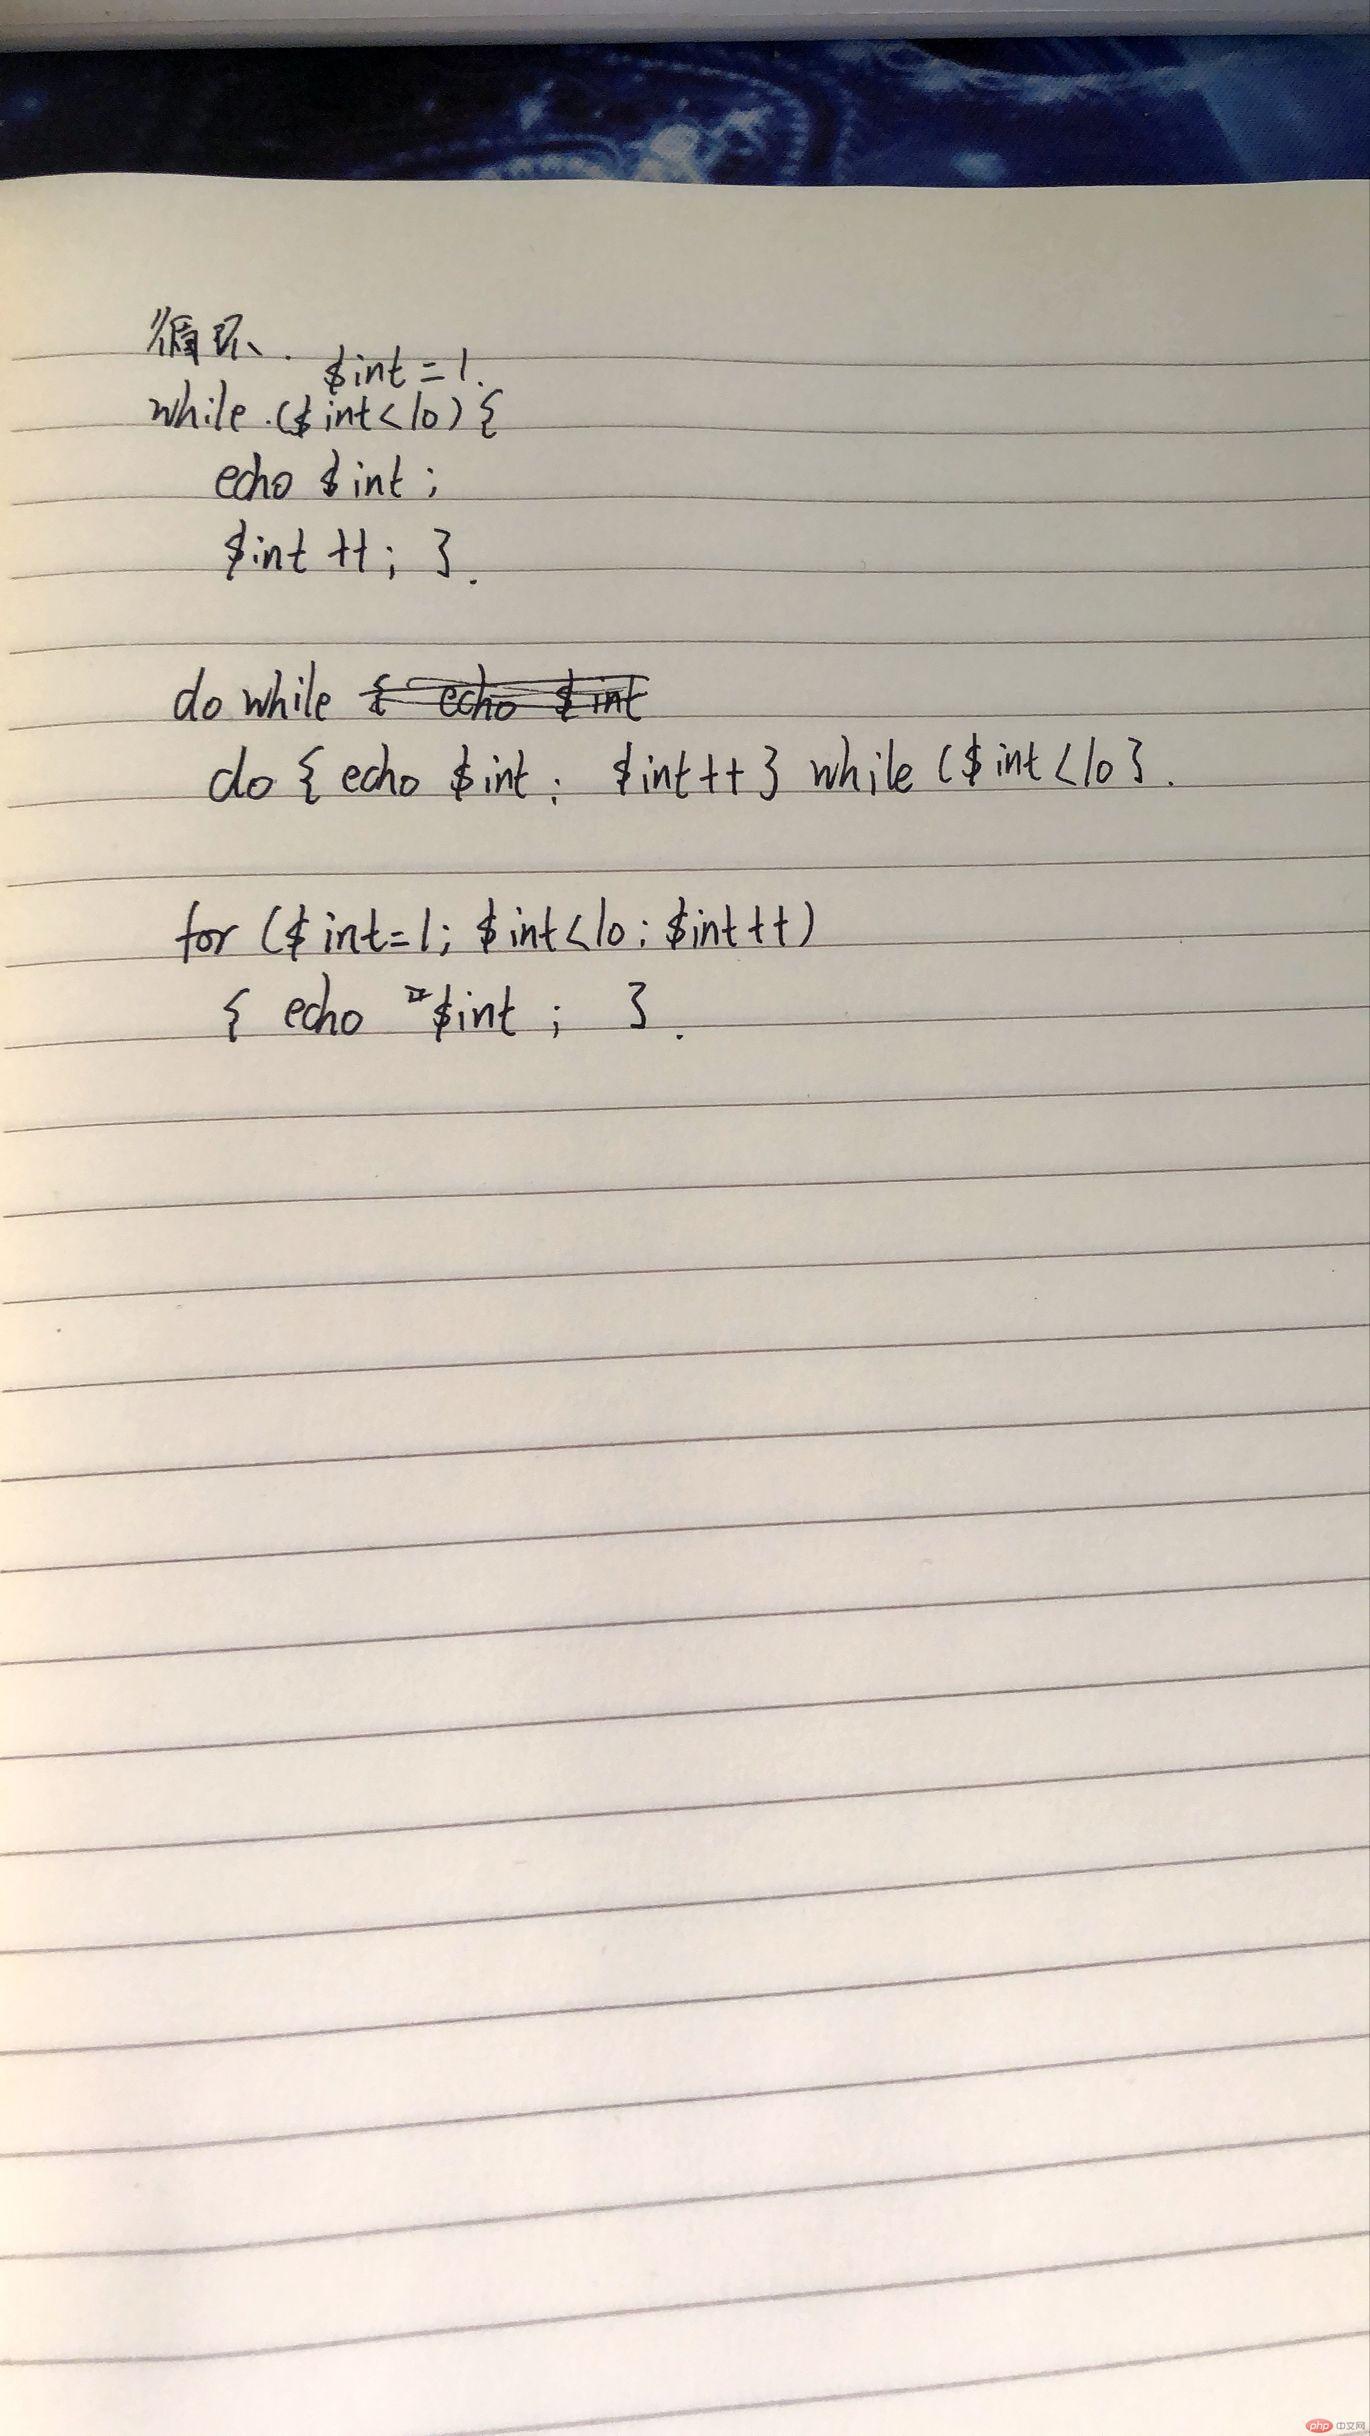 循环.
$int = 1.
while ($int < 10) {
echo $int ;
$int ++ ; } .
do while
do { echo $int ; $int ++ } while ($int < 10 } .
for ($int = 1 ; $int < 10 ; $int ++)
{ echo $int ; } .
php 中文网